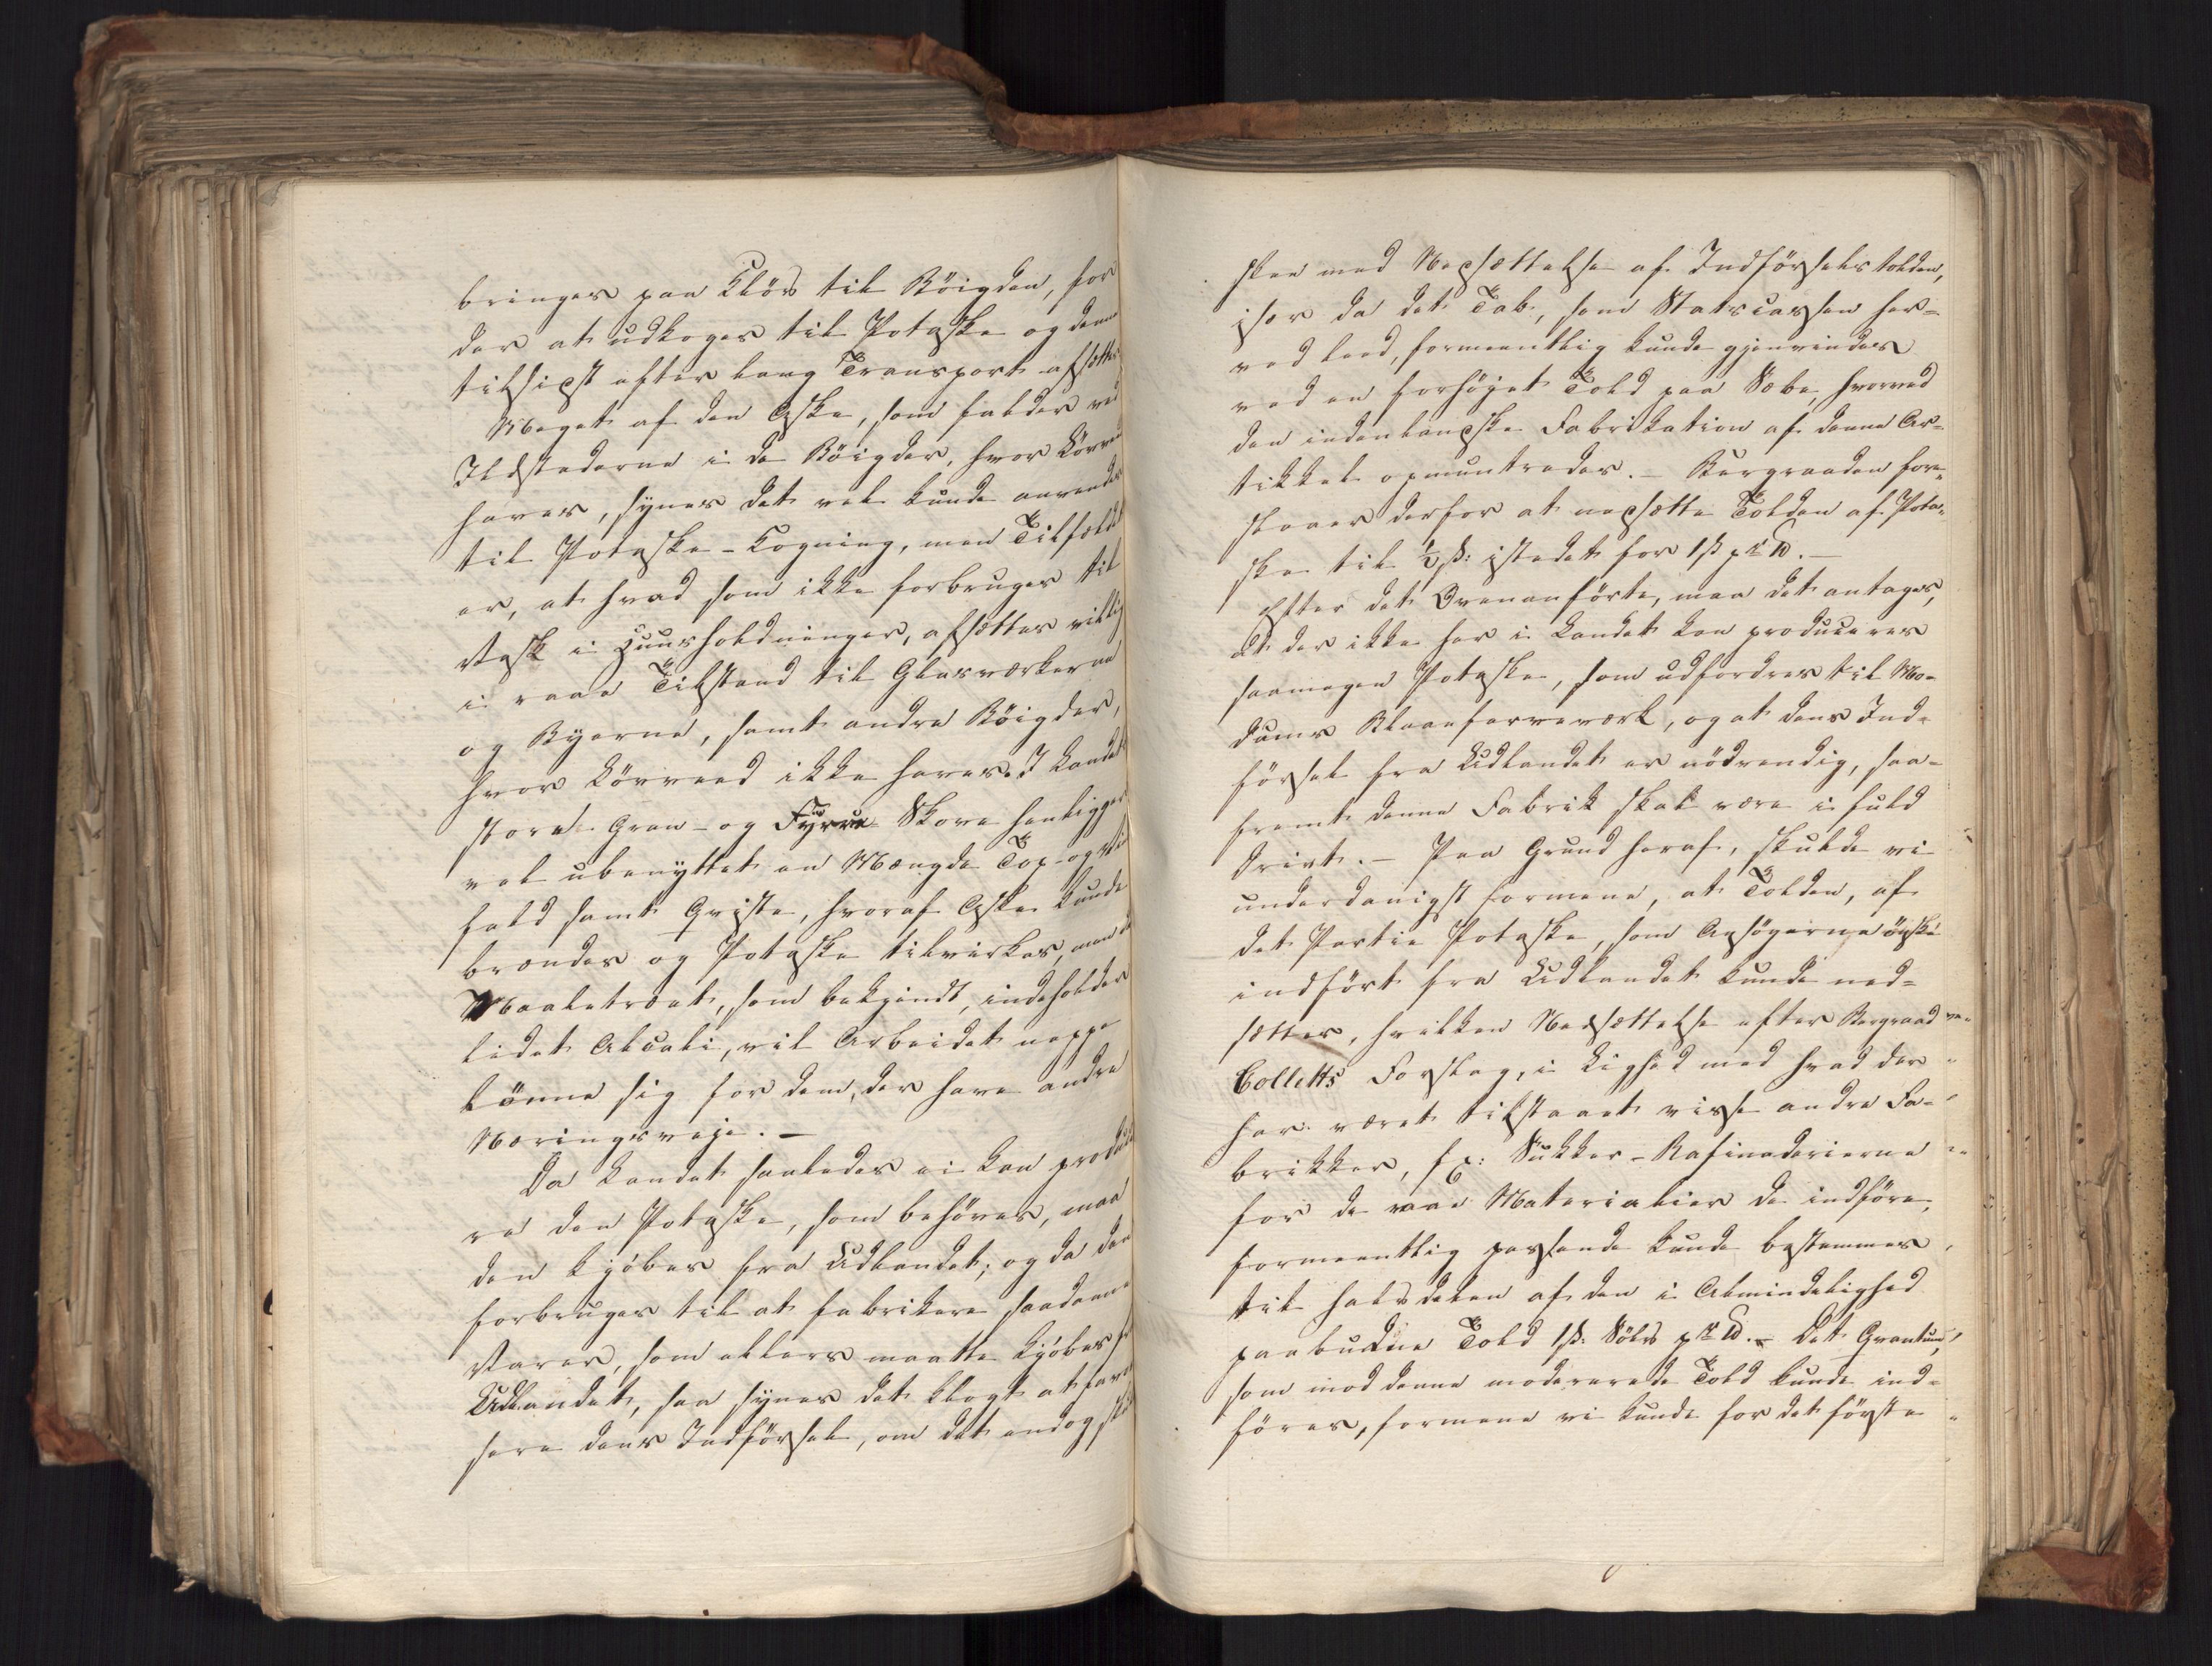 bringes paa Kløv til Bøigden, for
der at udkoges til Potaske og denne
tilsidst efter lang Transport afsættes
Meget af den Aske, som falder ved
Ildstederne i de Bøigder, hvor Løvved
haves, synes det vel kunde anvendes
til Potaske-Kogning, men Tilfældet
er, at hvad som ikke forbruges til
Vask i Huusholdninger, afsættes villig
i raae Tilstand til Glasværkerne
og Byerne, samt andre Bøigder,
hvor Løvved ikke haves. I Landets
store Gran- og Fyrre-Skove henligger
vel ubenyttet en Mængde Top- og Vind
fald samt Qviste, hvoraf Aske kunde
brændes og Potaske tilvirkes, men da
Naaletræet, som bekjendt, indeholder
lidet Alcali, vil Arbeidet neppe
lönne sig for dem, der have andre
Næringsveje. —
Da Landet saaledes ei kan produce
re den Potaske, som behøves, maa
den kjöbes fra Udlandet; og da den
forbruges til at fabrikere saadanne
Varer, som ellers maatte kjöbes fra
Udlandet, saa synes det klogt at favori
sere dens Indførsel, om det endog skulde
skee med Nedsættelse af Indførselstolden,
især da det Tab, som Statscassen her=
ved leed, formeentlig kunde gjenvindes
ved en forhøjet Told paa Sæbe, hvorved
den indenlandske Fabrikation af denne Ar=
tikkel opmuntredes. — Bergraaden fore=
slaaer derfor at nedsætte Tolden af Pota=
ske til ½ ß: istedet for 1 ß pr ℔. —
Efter det Ovenanførte, maa det antages,
at der ikke her i Landet kan produceres
saamegen Potaske, som udfordres til Mo=
dums Blaafarveværk, og at dens Ind=
førsel fra Udlandet er nødvendig, saa=
fremt denne Fabrik skal være i fuld
Drivt. — Paa Grund heraf, skulde vi
underdanigst formene, at Tolden, af
det Partie Potaske, som Ansøgerne ønske
indført fra Udlandet kunde ned=
sættes, hvilken Nedsættelse efter Bergraad
Colletts Forslag, i Lighed med hvad der
har været tilstaaet visse andre Fa=
brikker, f Ex: Sukker-Rafinaderierne
for de raae Materialier de indføre,
formeentlig passende kunde bestemmes
til halvdelen af den i Almindelighed
paabudne Told 1 ß: Sølv pr ℔. — Det Qvantum,
som mod denne modererede Told kunde ind=
føres, formene vi kunde for det første